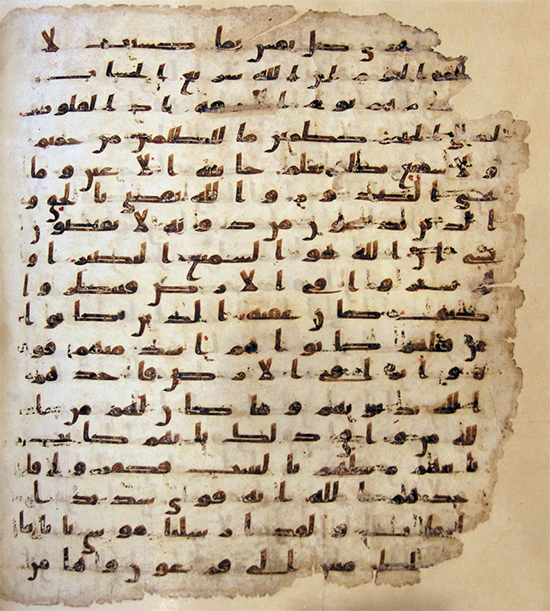 تجزى كل نفس بما كسبت لا
ظلم اليوم ان الله سريع الحساب
وانذرهم يوم الازفة اذ القلوب
لدى الحناجر كظمين ما للظلمين من حميم
ولا شفيع يطاع يعلم خاينة الاعين وما
تخفى الصدور والله يقضى بالحق و
الذين يدعون من دونه لا يقضون
بشى ان الله هو السميع البصير او
لم يسيروا فى الارض فينظروا
كيف كان عقبة الذين كانوا
من قبلهم كانوا هم اشد منهم قوة
واثارا فى الارض فاخذهم
الله بذنوبهم وما كان لهم من ا
لله من واق ذلك بانهم كانت
تاتيهم رسلهم بالبينت فكفروا فا
خذهم الله انه قوى شديد ا
لعقاب ولقد ارسلنا موسى باياتنا
وسلطن مبين الى فرعون وهامن